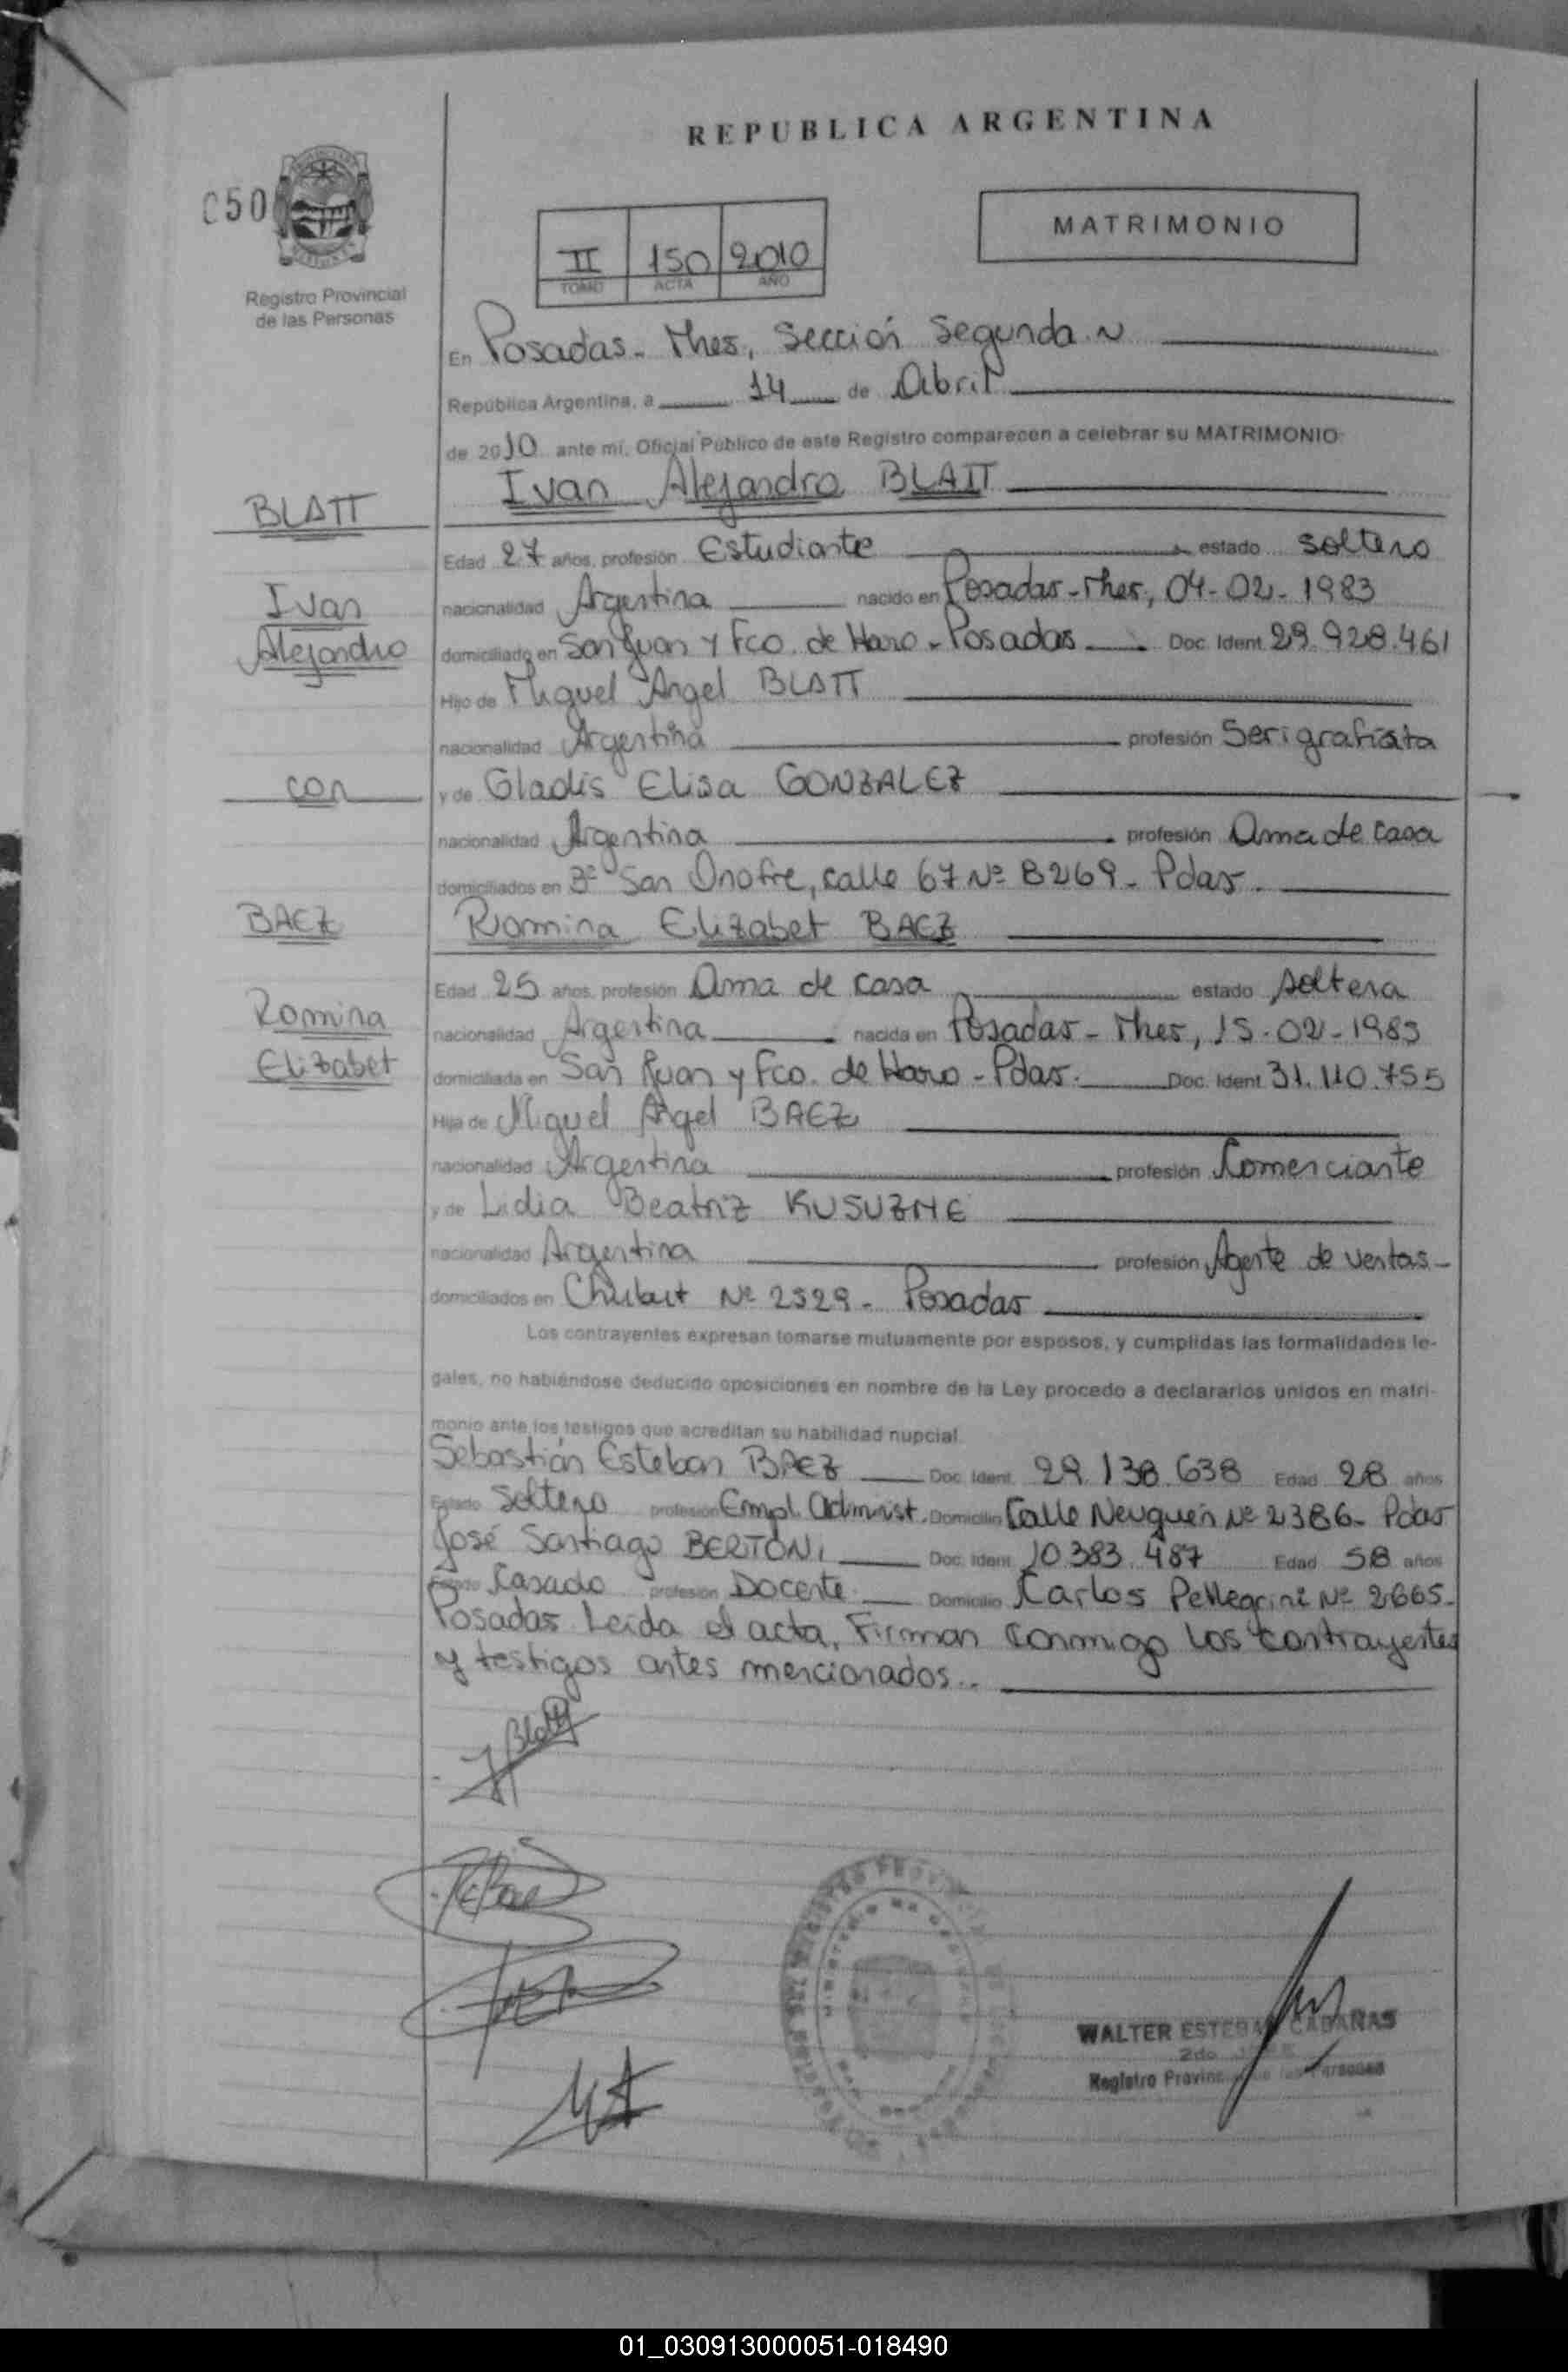 REPUBLICA ARGENTINA
C50
MATRIMONIO
II 150 2010
TOMO ACTA AÑO
Registro Provincial
de las Personas
En Posadas - Mnes, Sección Segunda
República Argentina, a 14 de Abril
de 2010 ante mí, Oficial Público de este Registro comparecen a celebrar su MATRIMONIO:
Ivan Alejandro BLATT
BLATT
Edad 27 años, profesión Estudiante estado soltero
Ivan
nacionalidad Argentina nacido en Posadas - Mnes, 04-02-1983
Alejandro
domiciliado en San Juan y Fco. de Haro - Posadas Doc. Ident. 29.928.461
Hijo de Miguel Angel BLATT
nacionalidad Argentina profesión Serigrafista
con
y de Gladis Elisa GONZALEZ
nacionalidad Argentina profesión Ama de casa
domiciliados en Bº San Onofre, calle 67 Nº 8269 - Pdas.
BAEZ
Romina Elizabet BAEZ
Edad 25 años, profesión Ama de casa estado soltera
Romina
nacionalidad Argentina nacida en Posadas - Mnes, 15-02-1985
Elizabet
domiciliada en San Juan y Fco. de Haro - Pdas. Doc. Ident. 31.110.755
Hija de Miguel Angel BAEZ
nacionalidad Argentina profesión Comerciante
y de Lidia Beatriz KUSUZNE
nacionalidad Argentina profesión Agente de ventas -
domiciliados en Chubut Nº 2529 - Posadas
Los contrayentes expresan tomarse mutuamente por esposos, y cumplidas las formalidades le-
gales, no habiéndose deducido oposiciones en nombre de la Ley procedo a declararlos unidos en matri-
monio ante los testigos que acreditan su habilidad nupcial
Sebastián Esteban BAEZ Doc. Ident. 29.138.638 Edad 28 años
Estado Soltero profesión Empl. Admnist. Domicilio Calle Neuquén Nº 2386 - Pdas
José Santiago BERTONI Doc. Ident. 10.383.487 Edad 58 años
Estado Casado profesión Docente Domicilio Carlos Pellegrini Nº 2665 -
Posadas. Leída el acta, Firman conmigo los contrayentes
y testigos antes mencionados..
Blatt
WALTER ESTEBAN CABAÑAS
2do
Registro Provincial de las Personas
01_030913000051-018490